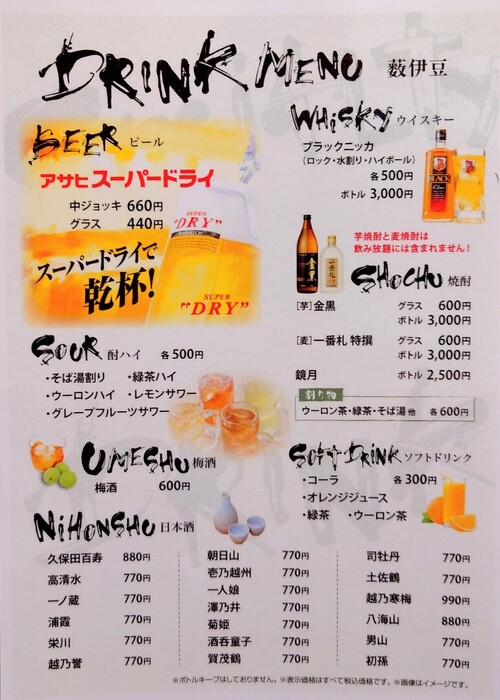 DRINK MENU 薮伊豆
BEER ビール
アサヒスーパードライ
中ジョッキ 660円
グラス 440円
スーパードライで
乾杯!
SUPER
"DRY"
SUPER
"DRY"
WHiSKY ウイスキー
ブラックニッカ
(ロック・水割り・ハイボール)
各500円
ボトル 3,000円
BLACK
Clear
芋焼酎と麦焼酎は
飲み放題には含まれません!
金黒
一番札
SHOCHU 焼酎
[芋]金黒 グラス 600円
ボトル 3,000円
[麦]一番札 特撰 グラス 600円
ボトル 3,000円
鏡月 ボトル 2,500円
割り物
ウーロン茶・緑茶・そば湯 他 各600円
SOUR 酎ハイ 各500円
・そば湯割り ・緑茶ハイ
・ウーロンハイ ・レモンサワー
・グレープフルーツサワー
UMESHU 梅酒
梅酒 600円
SOFT DRINK ソフトドリンク
・コーラ 各300円
・オレンジジュース
・緑茶 ・ウーロン茶
NiHONSHU 日本酒
久保田百寿 880円
高清水 770円
一ノ蔵 770円
浦霞 770円
栄川 770円
越乃誉 770円
朝日山 770円
壱乃越州 770円
一人娘 770円
澤乃井 770円
菊姫 770円
酒呑童子 770円
賀茂鶴 770円
司牡丹 770円
土佐鶴 770円
越乃寒梅 990円
八海山 880円
男山 770円
初孫 770円
※ボトルキープはしておりません。※表示価格はすべて税込価格です。※画像はイメージです。